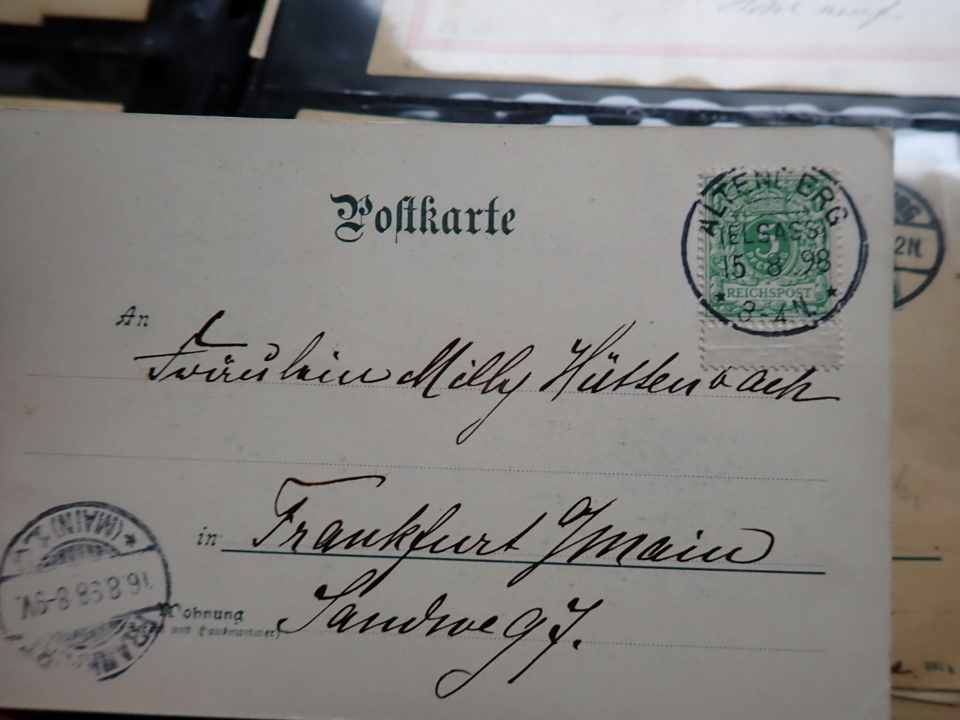 Postkarte
ALTENBERG
(ELSASS)
15 8 98
* 3-4N. *
5
REICHSPOST
An
Fräulein Milly Hüttenbach
in Frankfurt a/Main
Wohnung
Sandweg 7.
(MAIN)
16.8.98.8-9V.
2N.